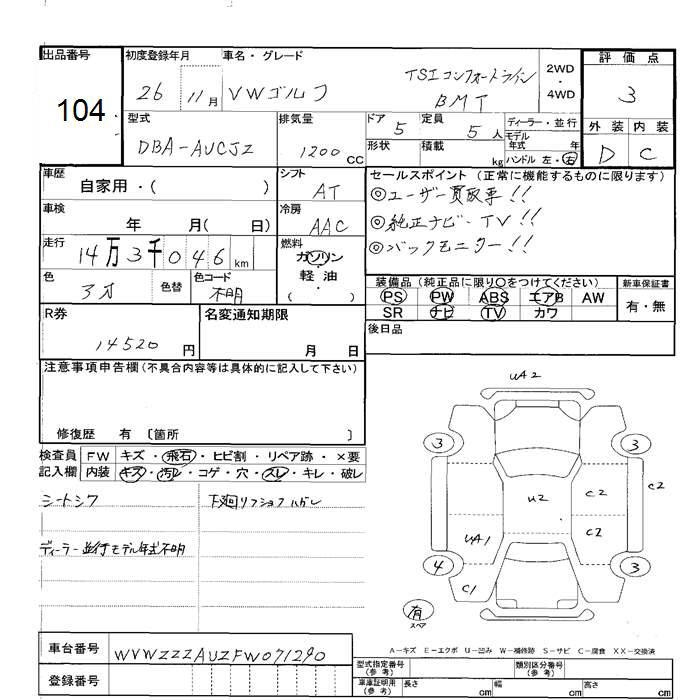 出品番号
104
初度登録年月
26 11月
車名・グレード
VWゴルフ
TSIコンフォートライン
BMT
2WD
・
4WD
評価点
3
外装 内装
D C
型式
DBA-AUCJZ
排気量
1200 CC
ドア
5
定員
5 人
形状
積載
kg
ディーラー・並行
モデル
年式 年
ハンドル 左・右
車歴
自家用・( )
シフト
AT
車検
年 月( 日)
冷房
AAC
走行
14万3千046 km
燃料
ガソリン
・
軽油
( )
色
色替
色コード
不明
セールスポイント (正常に機能するものに限ります)
◎ユーザー買取車!!
◎純正ナビ・TV!!
◎バックモニター!!
装備品(純正品に限り○をつけてください)
PS PW ABS エアB AW
SR ナビ TV カワ
新車保証書
有・無
後日品
R券
14520 円
名変通知期限
月 日
注意事項申告欄(不具合内容等は具体的に記入して下さい)
修復歴 有 〔箇所 〕
検査員
記入欄
FW キズ・飛石・ヒビ割・リペア跡・×要
内装 キズ・汚レ・コゲ・穴・スレ・キレ・破レ
シートシワ
ディーラー並行モデル年式不明
UA2
3 3
U2
C2
C2
C2
UA1
4 3
C1
有
スペア
A-キズ E-エクボ U-凹み W-補修跡 S-サビ C-腐食 XX-交換済
車台番号
WVWZZZAUZFW071290
登録番号
型式指定番号
(参考)
類別区分番号
(参考)
車庫証明用
(参考)
長さ cm 幅 cm 高さ cm